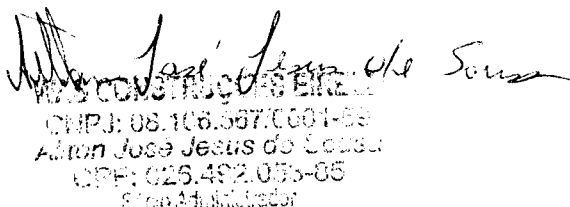 José Jesus de Souza
CONSTRUÇÕES EIRELI
CNPJ: 08.106.567/0001-69
Ailton José Jesus de Souza
CPF: 026.492.053-05
Sócio Administrador